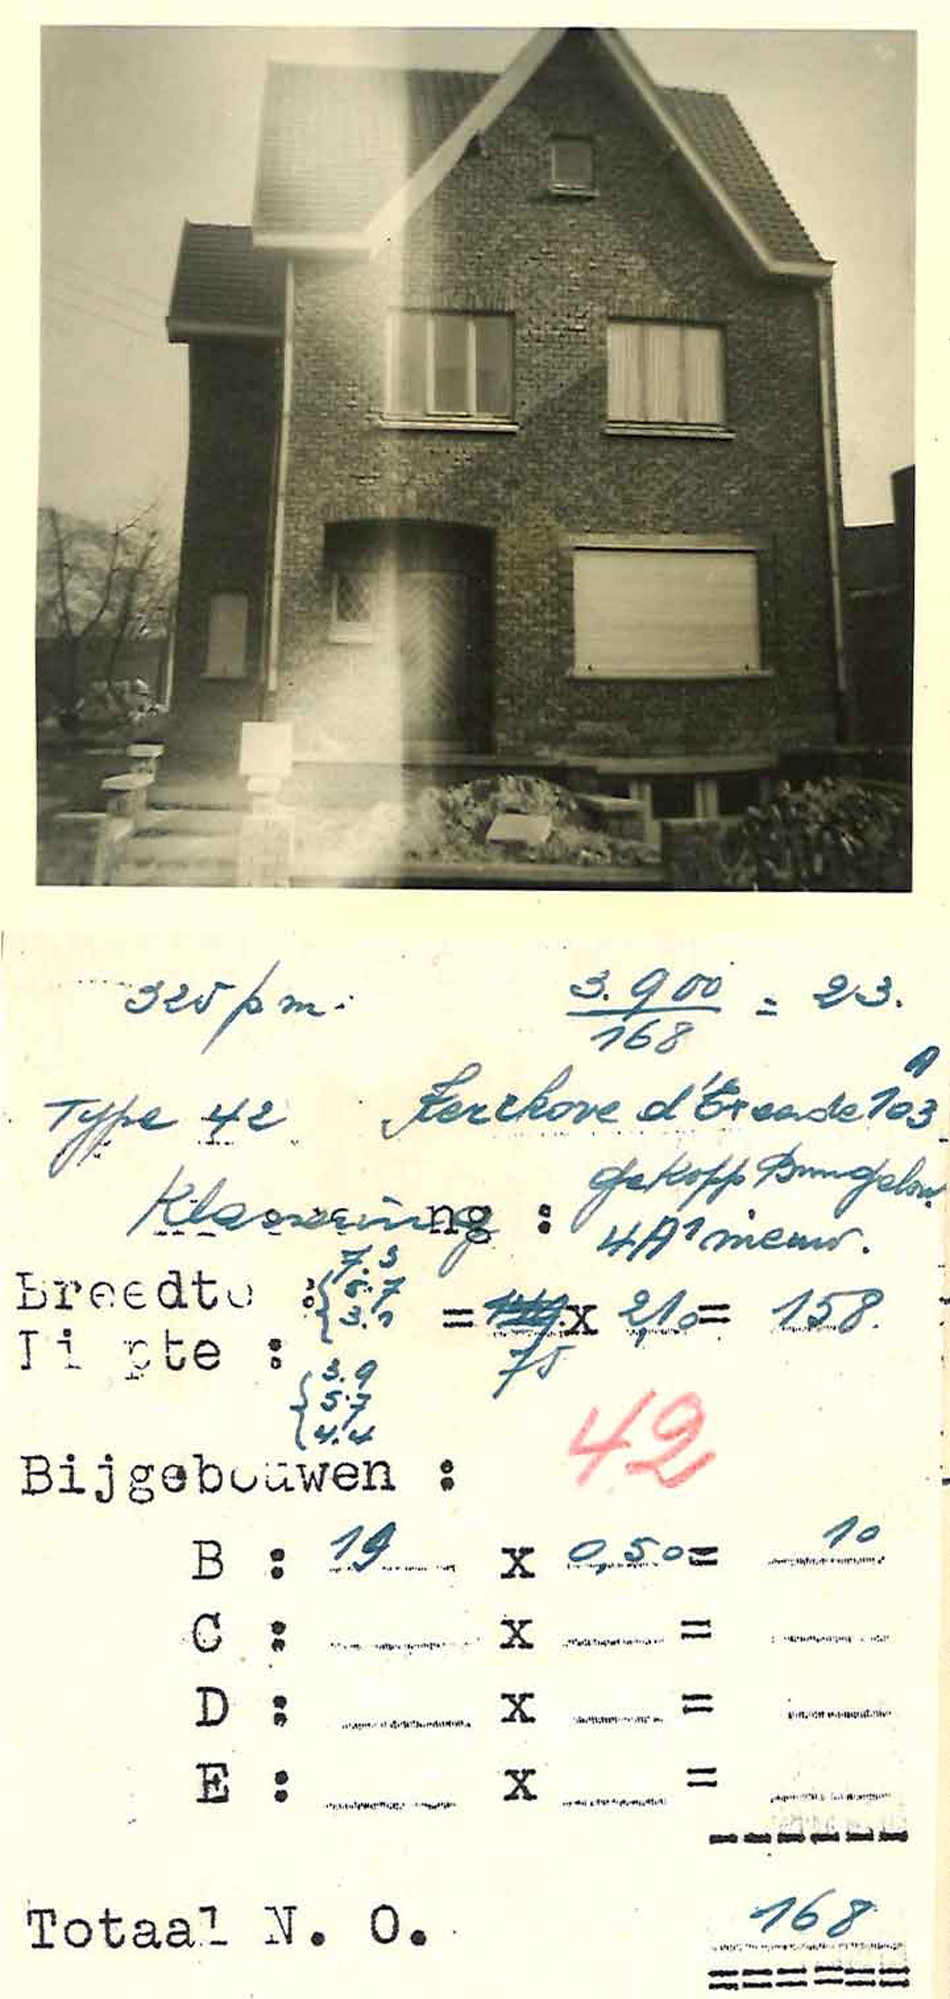 325 pm. 3.900 / 168 = 23.
Type 42 Kerckhove d'Exaerde 103 A
Klasseering : gekopp Bungalow
4A1 nieuw.
Breedte : 7.3 5.7 3.1 = x 2,10 = 158.
75
Diepte : 3.9 5.7 4.4
42
Bijgebouwen :
B : 19 x 0,50 = 10
C : x =
D : x =
E : x =
Totaal N. O. 168